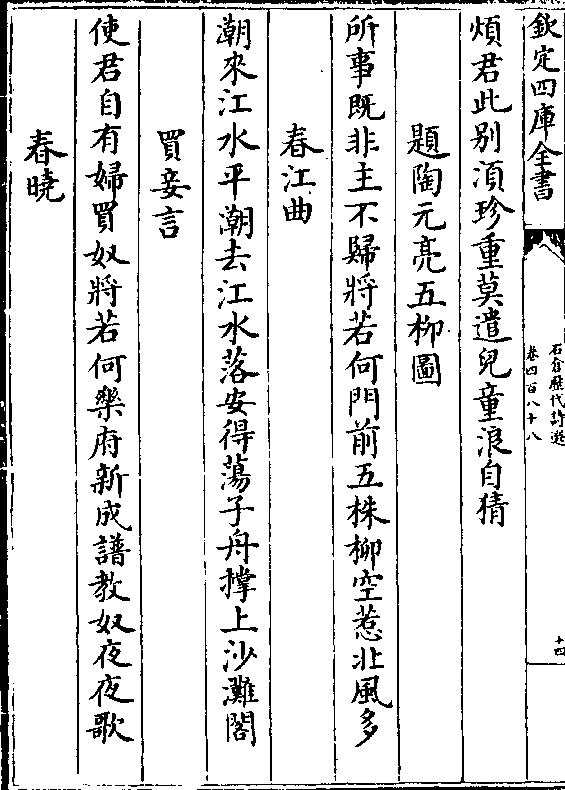 欽定四庫全書
石倉歷代詩選
卷四百八十八
十四
煩君此别須珍重莫遣兒童浪自猜
題陶元亮五柳圖
所事既非主不歸將若何門前五株柳空惹北風多
春江曲
潮來江水平潮去江水落安得蕩子舟撑上沙灘閣
買妾言
使君自有婦買奴將若何樂府新成譜教奴夜夜歌
春曉